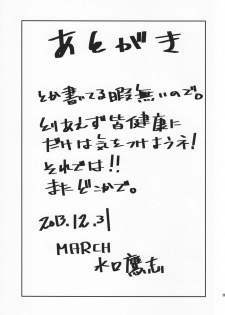 あとがき
とか書いてる暇無いので。
とりあえず皆健康に
だけは気をつけようネ!
それでは!!
またどこかで。
2013.12.31
MARCH
水口鷹志